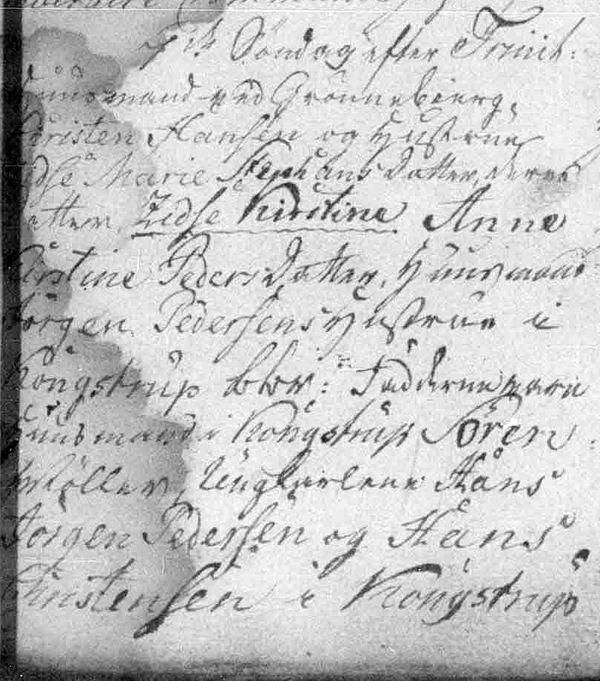 7de Söndag efter Trinit:
Huusmand ved Grönnebierg,
Christen Hansen og Hustrue
Zidse Marie Stephans Datter, deres
Datter, Zidse Kirstine Anne
Kirstine Peders Datter, Huusmand
Jörgen Pedersens Hustrue i
Kongstrup bbr: Fadderne vare
Huusmand i Kongstrup Sören
Möller, Ungkarlene Hans
Jörgen Pedersen og Hans
Christensen i Kongstrup